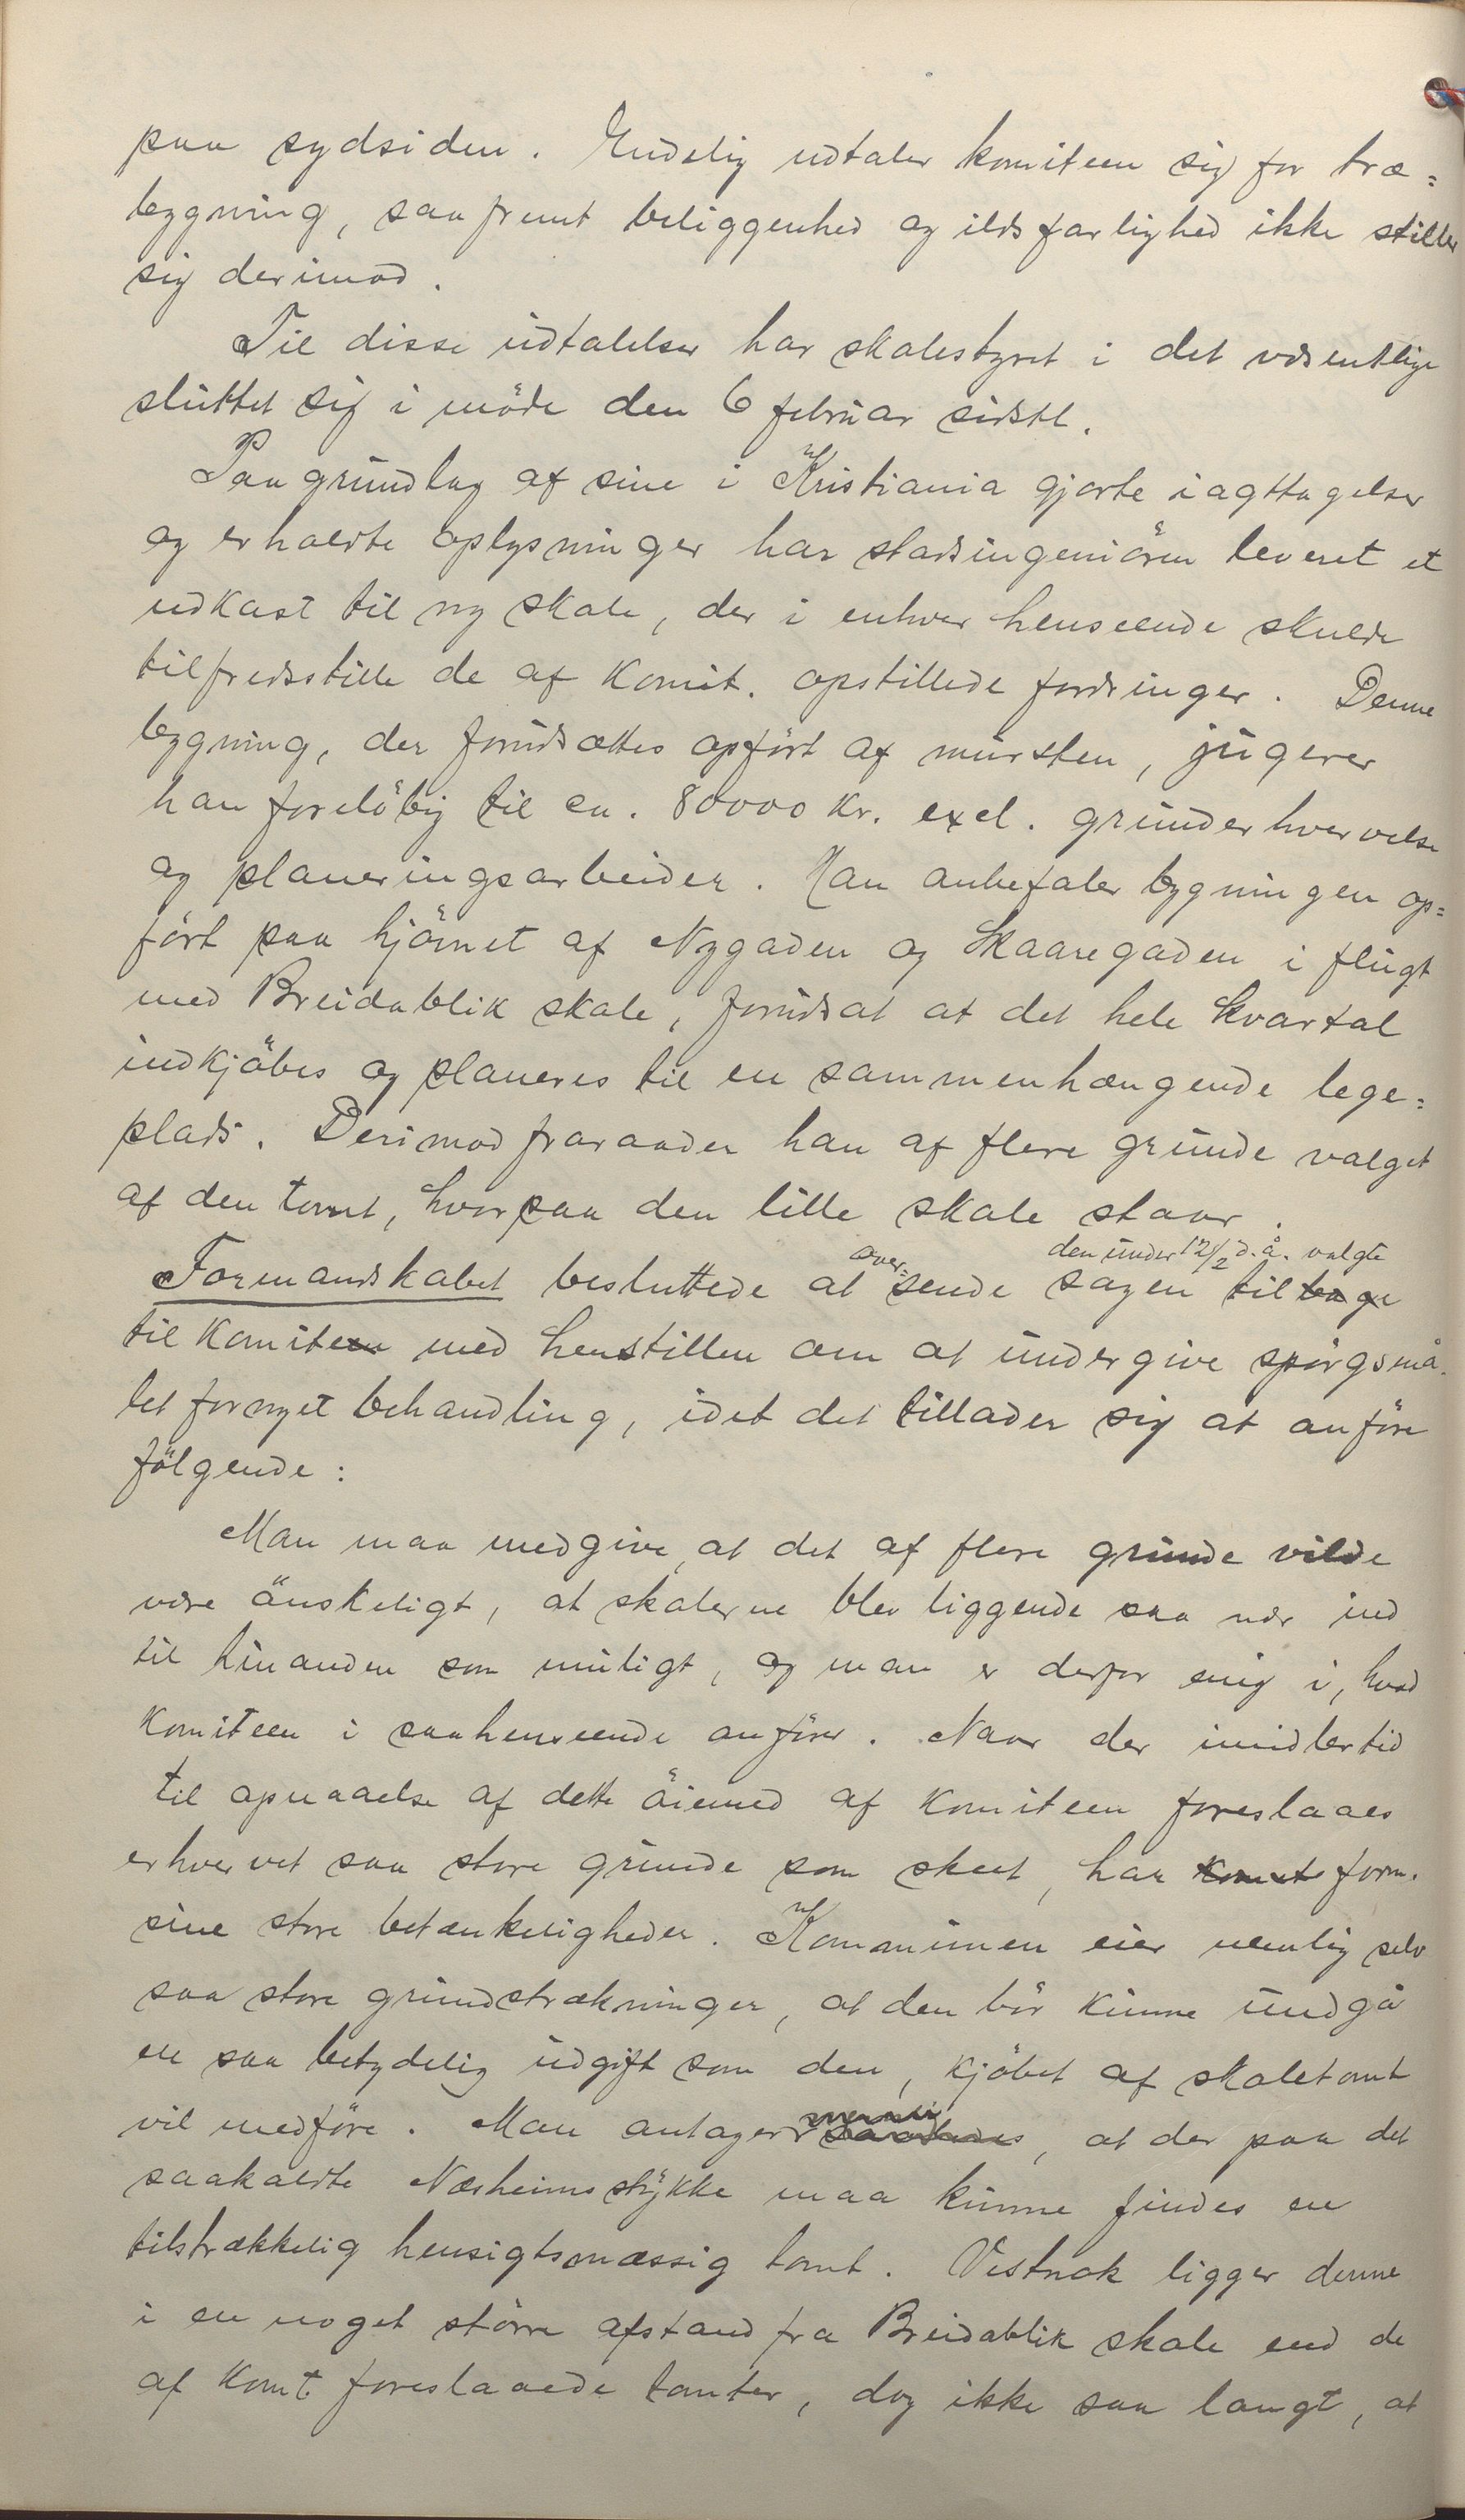 paa sydsiden. Endelig udtaler komiteen sig for træ=
bygning, saafremt beliggenhed og ildsfarlighed ikke stiller
sig derimod.
Til disse udtalelser har skolestyret i det væsentlige
sluttet sig i möde den 6 februar sidstl.
Paa grundlag af sine i Kristiania gjorte iagttagelser
og erholdte oplysninger har stadsingeniören leveret et
udkast til ny skole, der i enhver henseende skulde
tilfredsstille de af Komit. opstillede fordringer. Denne
bygning, der forudsættes opfört af mursten, jugerer
han forelöbig til ca. 80000 Kr. excl. grunderhvervelse
og planeringsarbeider. Han anbefaler bygningen op=
fört paa hjörnet af Nygaden og Skaaregaden i flugt
med Breidablik skole, forudsat at det hele kvartal
indkjöbes og planeres til en sammenhængende lege=
plads. Derimod fraraader han af flere grunde valget
af den tomt, hvorpaa den lille skole staar.
over= den under 12/2 d.å. valgte
Formandskabet besluttede at sende sagen tilbage
til Komiteen med henstillen om at undergive spörgsmå-
let fornyet behandling, idet det tillader sig at anföre
fölgende:
Man maa medgive, at det af flere grunde vilde
være önskeligt, at skolerne blev liggende saa nær ind
til hinanden som muligt, og man er derfor enig i, hvad
Komiteen i saahenseende anförer. Naar der imidlertid
til opnaaelse af dette öiemed af Komiteen foreslaaes
erhvervet saa store grunde som skeet, har Komit form.
sine store betænkeligheder. Kommunen eier nemlig selv
saa store grundstrækninger, at den bör kunne undgå
en saa betydelig udgift som den, kjöbet af skoletomt
vil medföre. Man antager saaledes, at der paa det
saakaldte Næsheimstykke maa kunne findes en
tilstrækkelig hensigtsmæssig tomt. Vistnok ligger denne
i en noget större afstand fra Breidablik skole end de
af Komt. foreslaaede tomter, dog ikke saa langt, at